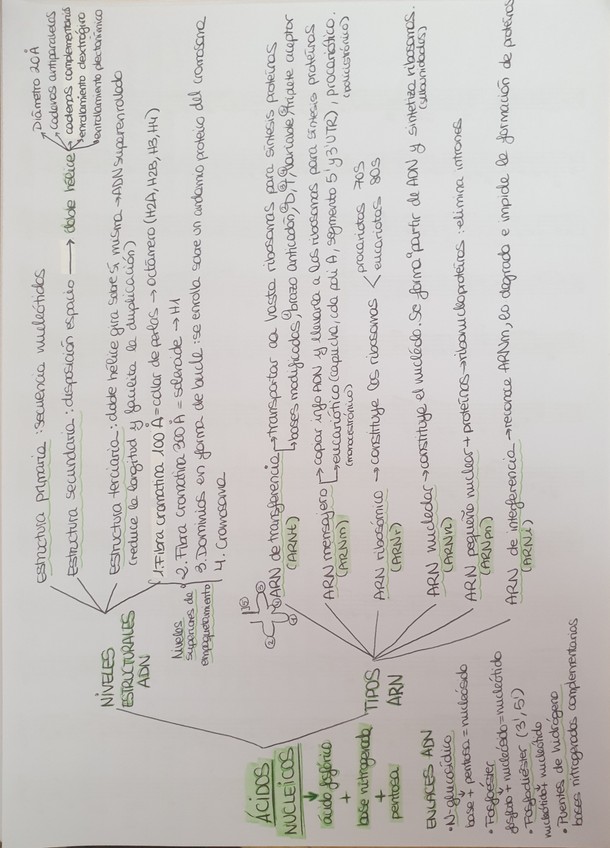 ÁCIDOS
NUCLEICOS
ácido fosfórico
+
base nitrogenada
+
pentosa
ENLACES ADN
• N-glucosídico
base + pentosa = nucleósido
• Fosfoéster
fosfato + nucleósido = nucleótido
• Fosfodiéster (3', 5')
nucleótido + nucleótido
• Puentes de hidrógeno
bases nitrogenadas complementarias
NIVELES
ESTRUCTURALES
ADN
Estructura primaria: secuencia nucleótidos
Estructura secundaria: disposición espacio → doble hélice
Diámetro 20 Å
cadenas antiparalelas
cadenas complementarias
enrollamiento dextrógiro
enrollamiento plectonímico
Estructura terciaria: doble hélice gira sobre sí misma → ADN superenrollado
(reduce la longitud y facilita la duplicación)
Niveles
superiores de
empaquetamiento
1. Fibra cromatina 100 Å = collar de perlas → octámero (H2A, H2B, H3, H4)
2. Fibra cromatina 300 Å = solenoide → H1
3. Dominios en forma de bucle: se enrolla sobre un andamio proteico del cromosoma
4. Cromosoma
TIPOS
ARN
ARN de transferencia → transportar aa hasta ribosomas para síntesis proteínas
(ARNt)
bases modificadas, brazo anticodón, D, T, variable, triplete aceptor
ARN mensajero → copiar info ADN y llevarla a los ribosomas para síntesis proteínas
(ARNm)
eucariótico (capucha, cola poli A, segmento 5' y 3' UTR), procariótico.
(monocistrónico)
(policistrónico)
ARN ribosómico → constituye los ribosomas
(ARNr)
procariotas 70S
eucariotas 80S
ARN nucleolar → constituye el nucléolo. Se forma a partir de ADN y sintetiza ribosomas.
(ARNn)
(subunidades)
ARN pequeño nuclear + proteínas → ribonucleoproteínas: elimina intrones
(ARNpn)
ARN de interferencia → reconoce ARNm, lo degrada e impide la formación de proteínas
(ARNi)